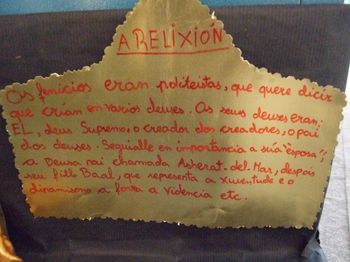 A RELIXIÓN
Os fenicios eran politeistas, que quere dicir
que crían en varios deuses. Os seus deuses eran:
EL, deus Supremo, o creador dos creadores, o pai
dos deuses. Seguíalle en importancia a súa "esposa";
a Deusa nai chamada Asherat-del-Mar, despois
seu fillo Baal, que representa a xuventude e o
dinamismo a forza a videncia etc.